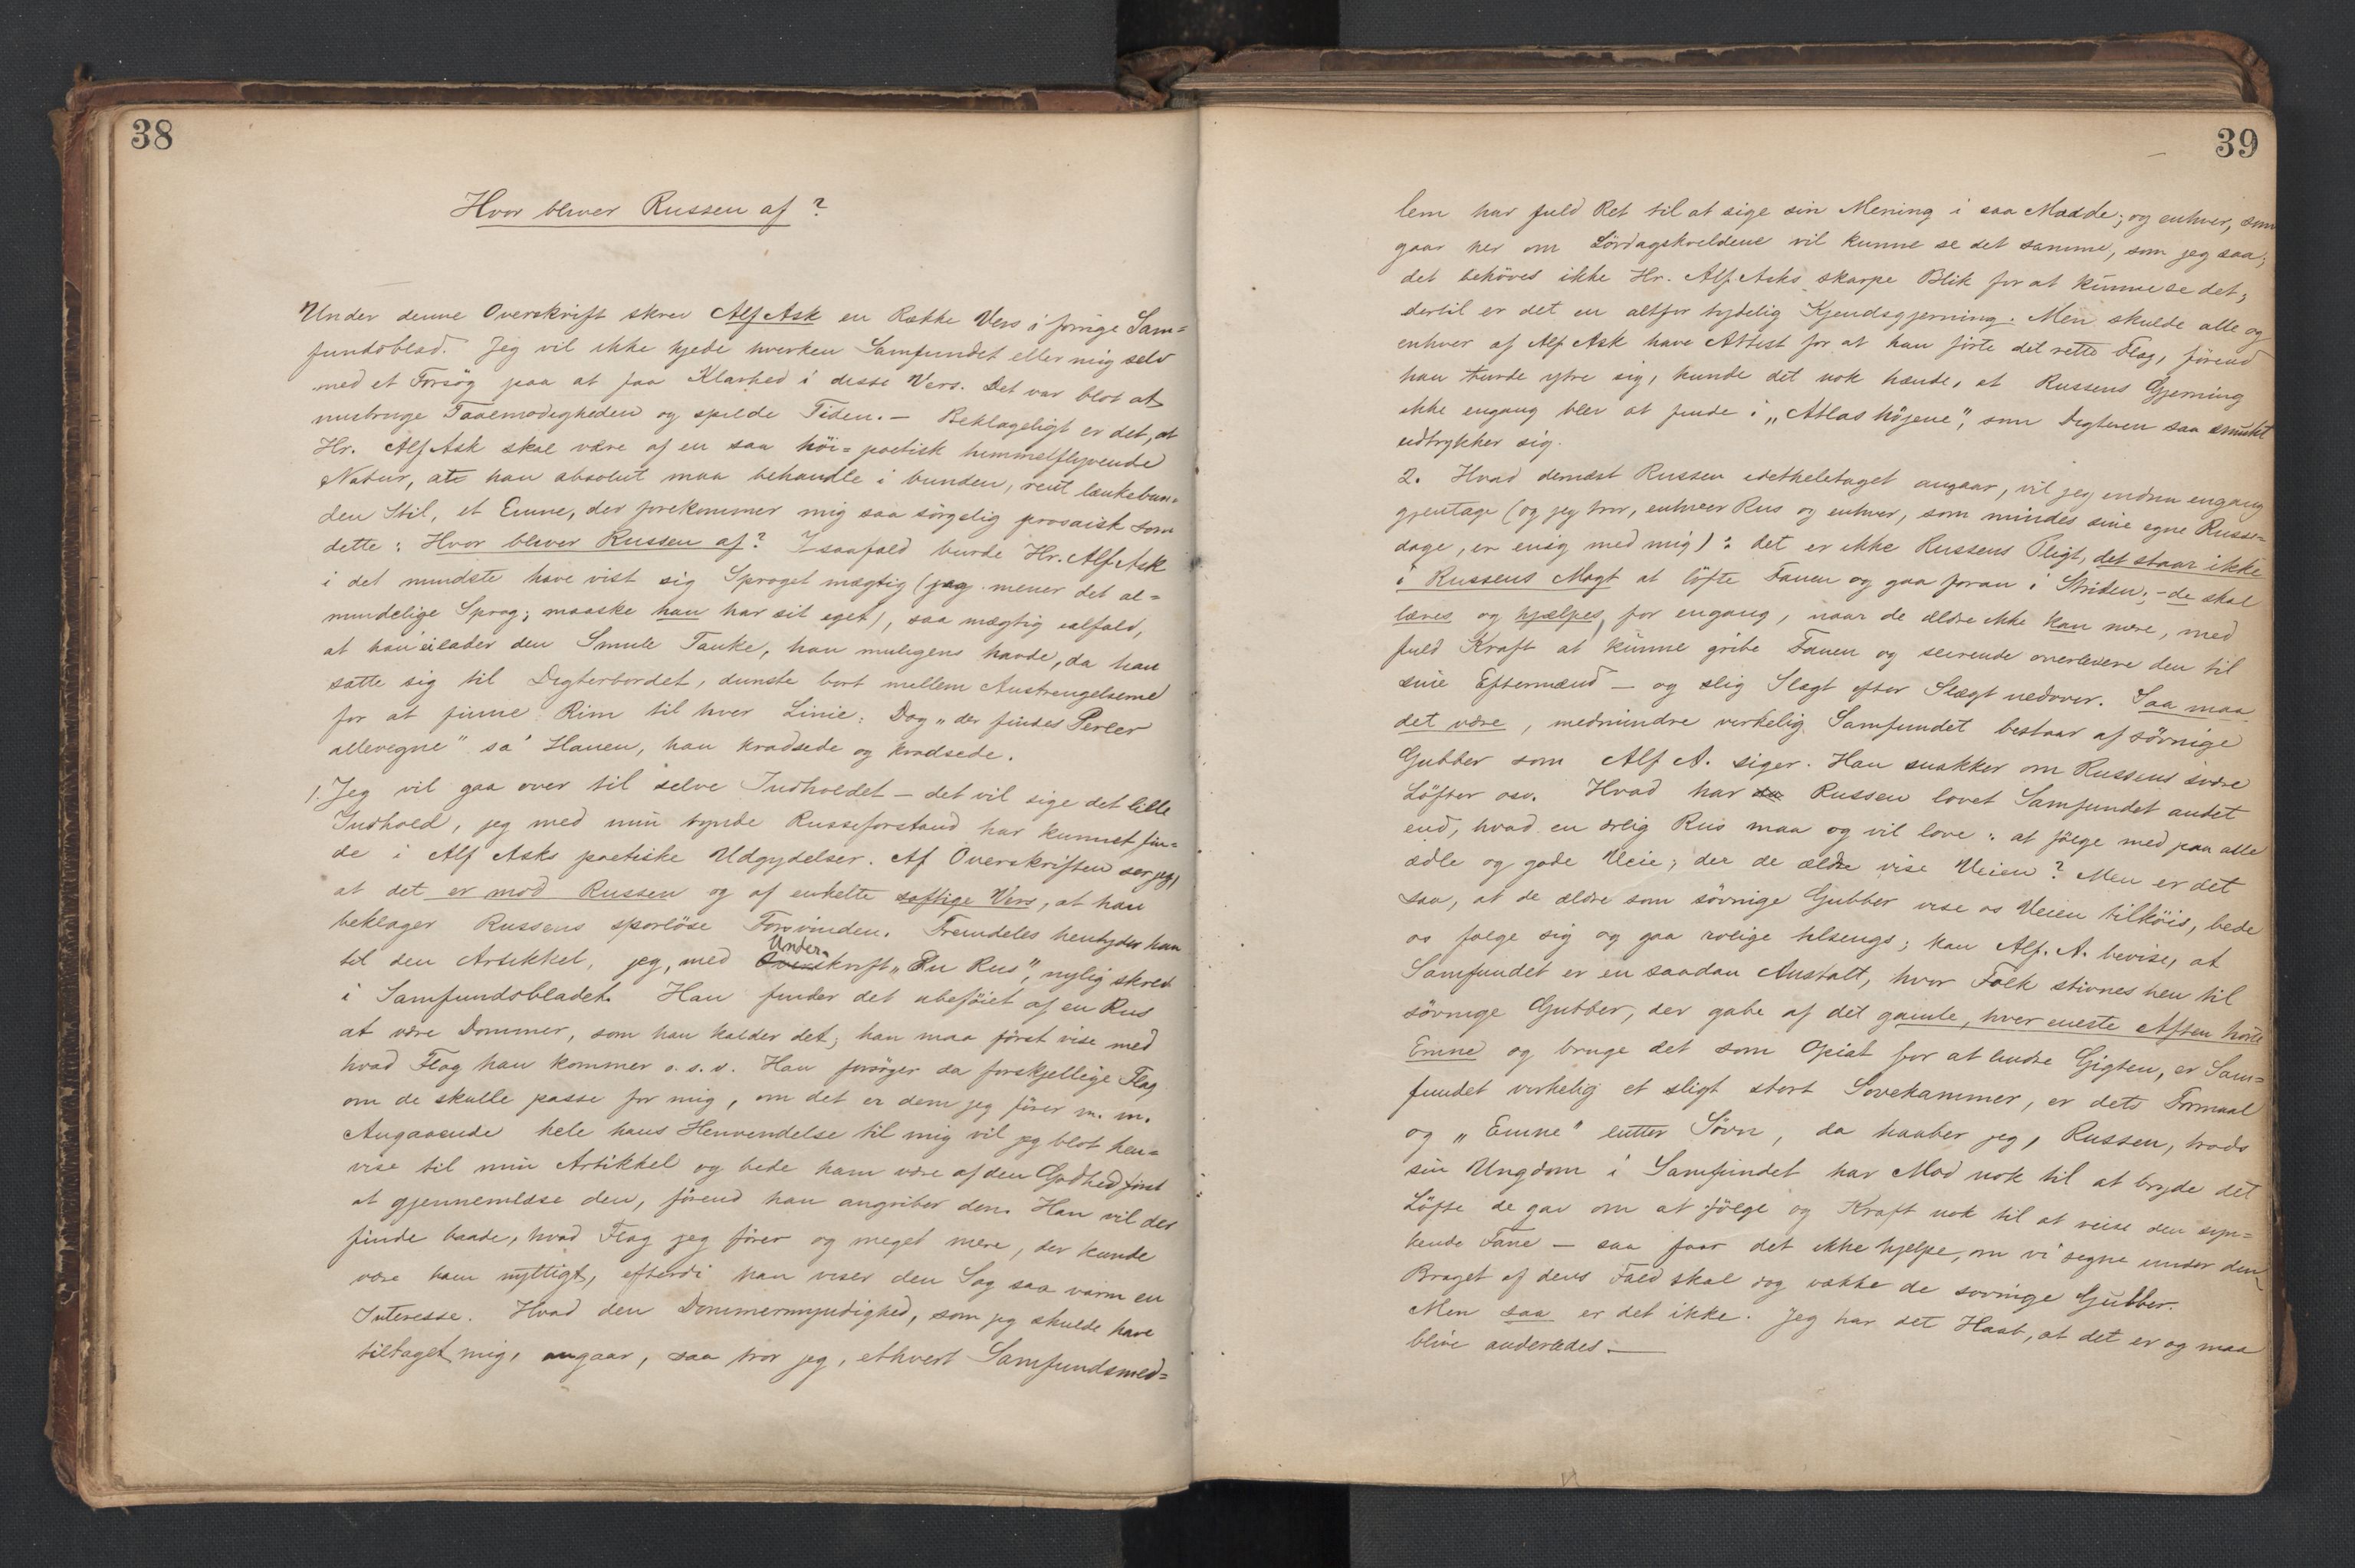 38
Hvor bliver Russen af?
Under denne Overskrift skrev Alf Ask en Række Vers i forrige Sam=
fundsblad. Jeg vil ikke kjede hverken Samfundet eller mig selv
med et Forsög paa at faa Klarhed i disse Vers. Det var blot at
misbruge Taalmodigheden og spilde Tiden. – Beklageligt er det, at
Hr. Alf Ask skal være af en saa höi=poetisk himmelflyvende
Natur, at han absolut maa behandle i bunden, rent lænkebun=
den Stil, et Emne, der forekommer mig saa sörgelig prosaisk som
dette: Hvor bliver Russen af? I saafald burde Hr. Alf Ask
i det mindste have vist sig Sproget mægtig (jeg mener det al=
mindelige Sprog; maaske han har sit eget), saa mægtig ialfald,
at han ei lader den Smule Tanke, han muligens havde, da han
satte sig til Digterbordet, dunste bort mellem Anstrengelserne
for at finne Rim til hver Linie: Dog „der findes Perler
allevegne" sa' Hanen, han kradsede og kradsede.
1. Jeg vil gaa over til selve Indholdet – det vil sige det lille
Indhold, jeg med min tynde Russeforstand har kunnet fin=
de i Alf Asks poetiske Udgydelser. Af Overskriften ser jeg,
at det er mod Russen og af enkelte saftige Vers, at han
beklager Russens sporlöse Forsvinden. Fremdeles hentyder han
til den Artikkel, jeg, med Overskrift Under- „En Rus", nylig skrev
i Samfundsbladet. Han finder det ubeföiet af en Rus
at være Dommer, som han kalder det; han maa först vise med
hvad Flag han kommer o. s. v. Han prövger da forskjellige Flag
om de skulle passe for mig, om det er dem jeg förer m. m.
Angaaende hele hans Henvendelse til mig vil jeg blot hen=
vise til min Artikkel og bede ham være af den Godhed först
at gjennemlæse den, förend han angriber den. Han vil der
finde baade, hvad Flag jeg förer og meget mere, der kunde
være ham nyttigt, efterdi han viser den Sag saa varm en
Interesse. Hvad den Dommermyndighed, som jeg skulde have
tiltaget mig, angaar, saa tror jeg, ethvert Samfundsmed=
39
lem har fuld Ret til at sige sin Mening i saa Maade; og enhver, som
gaar her om Lördagskveldene vil kunne se det samme, som jeg saa;
det behöves ikke Hr. Alf Asks skarpe Blik for at kunne se det;
dertil er det en altfor tydelig Kjendsgjerning. Men skulde alle og
enhver af Alf Ask have Attest for at han förte det rette Flag, förend
han turde ytre sig, kunde det nok hænde, at Russens Gjerning
ikke engang blev at finde i „Atlas höjene", som Digteren saa smukt
udtrykker sig.
2. Hvad dernæst Russen idetheletaget angaar, vil jeg endnu engang
gjentage (og jeg tror, enhver Rus og enhver, som mindes sine egne Russe=
dage, er enig med mig): det er ikke Russens Pligt, det staar ikke
i Russens Magt at löfte Fanen og gaa foran i Striden; – de skal
læres og hjælpes, for engang, naar de ældre ikke kan mere, med
fuld Kraft at kunne gribe Fanen og seirende overlevere den til
sine Eftermænd – og slig Slægt efter Slægt nedover. Saa maa
det være, medmindre virkelig Samfundet bestaar af sövnige
Gubber som Alf A. siger. Han snakker om Russens svære
Löfter osv. Hvad har Russen lovet Samfundet andet
end, hvad en ærlig Rus maa og vil love: at fölge med paa alle
ædle og gode Veie, der de ældre vise Veien? Men er det
saa, at de ældre som sövnige Gubber vise os Veien tilköis, bede
os fölge sig og gaa rolige tilsengs; kan Alf. A. bevise, at
Samfundet er en saadan Anstalt, hvor Folk stivnes hen til
sövnige Gubber, der gabe af det gamle, hver eneste Aften hörte
Emne og bruge det som Opiat for at lindre Gigten, er Sam=
fundet virkelig et sligt stort Sovekammer, er dets Formaal
og „Emne" lutter Sövn, da haaber jeg, Russen, trods
sin Ungdom i Samfundet har Mod nok til at bryde det
Löfte de gav om at fölge og Kraft nok til at reise den syn=
kende Fane – saa faar det ikke hjelpe, om vi segne under den
Braget af dens Fald skal dog vække de sovnige Gubber.
Men saa er det ikke. Jeg har det Haab, at det er og maa
blive anderledes. —